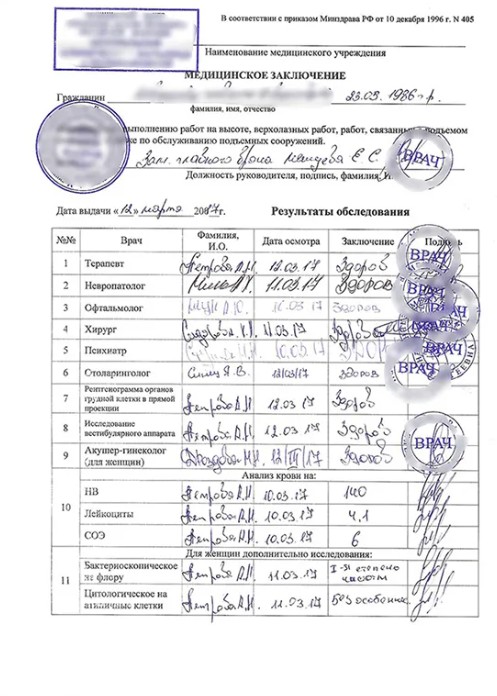 В соответствии с приказом Минздрава РФ от 10 декабря 1996 г. N 405
Наименование медицинского учреждения
МЕДИЦИНСКОЕ ЗАКЛЮЧЕНИЕ
Гражданин 23.05. 1986 г.р.
фамилия, имя, отчество
выполнению работ на высоте, верхолазных работ, работ, связанных с подъемом
же по обслуживанию подъемных сооружений.
Зам. главного врача Е. С. ВРАЧ
Должность руководителя, подпись, фамилия, И.
Дата выдачи «12» марта 2017г. Результаты обследования
№№ Врач Фамилия, И.О. Дата осмотра Заключение Подпись
1 Терапевт Петрова А.И. 12.03.17 Здоров ВРАЧ
2 Невропатолог 11.03.17 Здоров
3 Офтальмолог 10.03.17 Здоров ВРАЧ
4 Хирург Сидорова 11.03.17 Здоров
5 Психиатр 10.03.17 ВРАЧ
6 Столаринголог Я.В. 12/03/17 Здоров
7 Рентгенограмма органов грудной клетки в прямой проекции Петрова А.И. 12.03.17 Здоров
8 Исследование вестибулярного аппарата Петрова А.И. 12.03.17 Здоров
9 Акушер-гинеколог (для женщин) Дроздова 12/III/17 Здоров ВРАЧ
Анализ крови на:
10 НВ Петрова А.И. 10.03.17 140
Лейкоциты Петрова А.И. 10.03.17 4,1
СОЭ Петрова А.И. 10.03.17 6
Для женщин дополнительно исследования:
11 Бактериоскопическое на флору Петрова А.И. 11.03.17 I-я степень чистоты
Цитологическое на атипичные клетки Петрова А.И. 11.03.17 Без